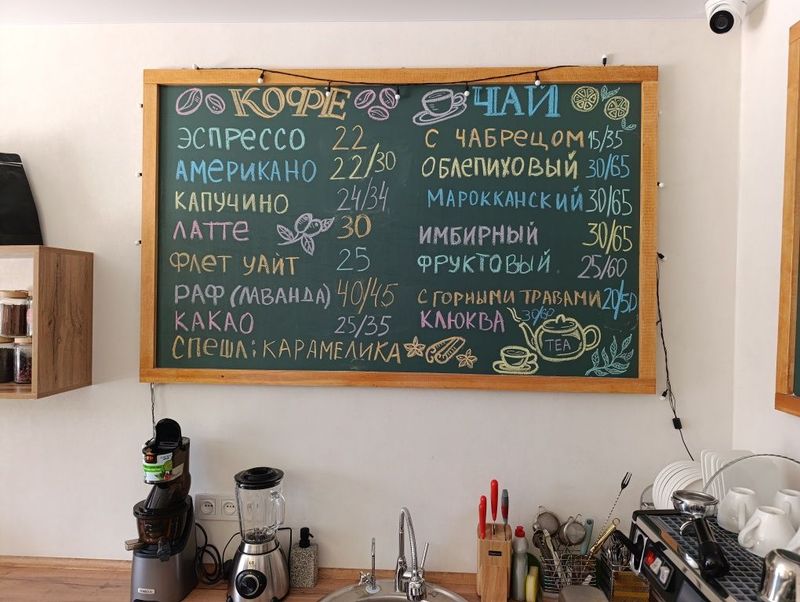 КОФЕ
ЭСПРЕССО 22
АМЕРИКАНО 22/30
КАПУЧИНО 24/34
ЛАТТЕ 30
ФЛЕТ УАЙТ 25
РАФ (ЛАВАНДА) 40/45
КАКАО 25/35
СПЕШЛ: КАРАМЕЛИКА
ЧАЙ
С ЧАБРЕЦОМ 15/35
ОБЛЕПИХОВЫЙ 30/65
МАРОККАНСКИЙ 30/65
ИМБИРНЫЙ 30/65
ФРУКТОВЫЙ 25/60
С ГОРНЫМИ ТРАВАМИ 20/50
КЛЮКВА 30/60
TEA